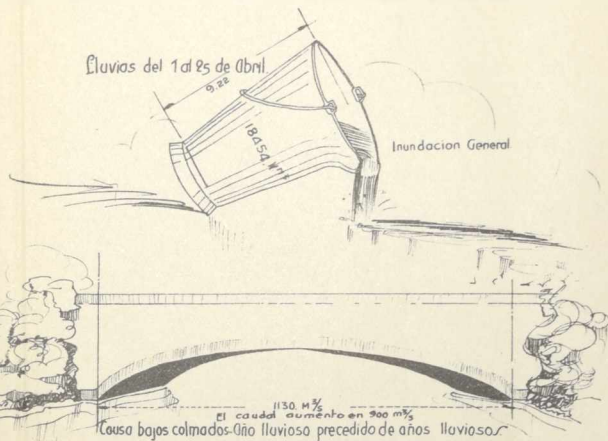 Lluvias del 1 al 25 de Abril
9.22
18454 M³
Inundacion General
1130 M³/s
El caudal aumento en 900 m³/s
Causa bajos colmados-Año lluvioso precedido de años lluviosos.